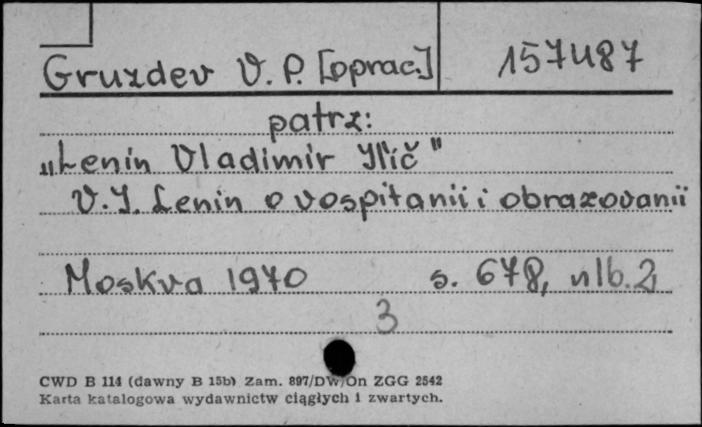 Gruzdev V. P. [oprac.] 157487
patrz:
„Lenin Vladimir Il'ič"
V. I. Lenin o vospitanii i obrazovanii
Moskva 1970 s. 678, nlb. 2
3
CWD B 114 (dawny B 15b) Zam. 897/DW/On ZGG 2542
Karta katalogowa wydawnictw ciągłych i zwartych.